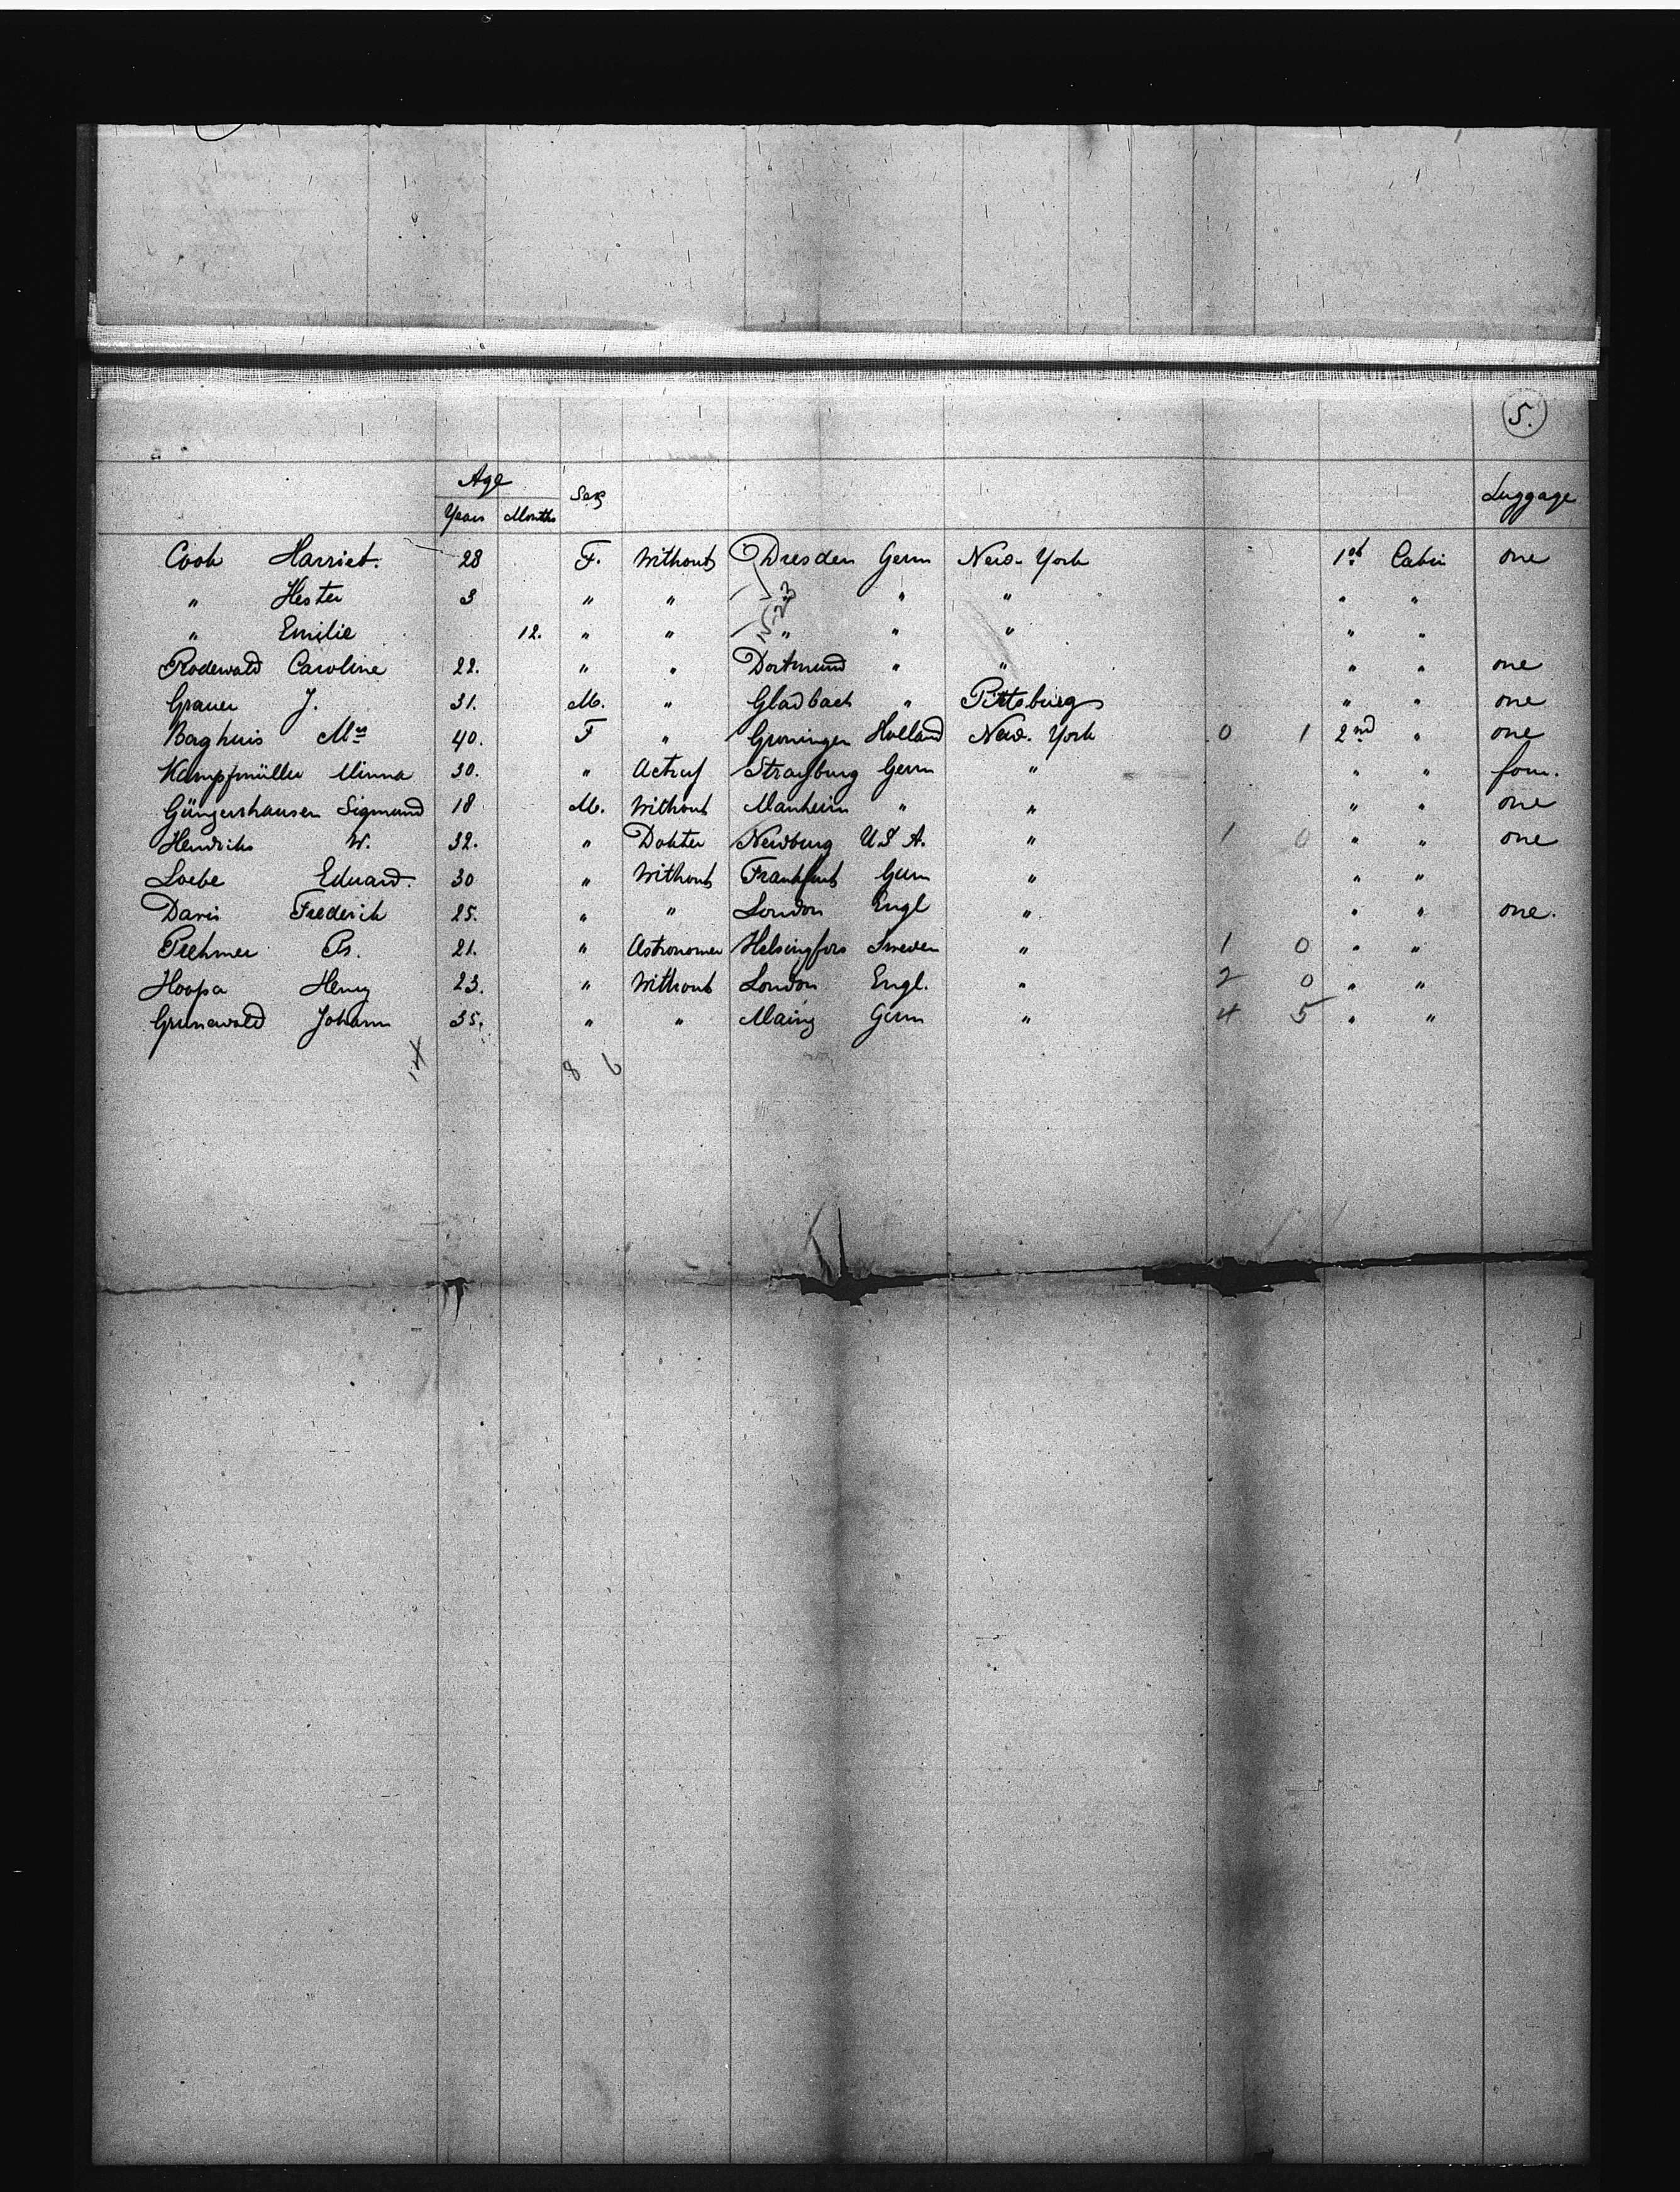 5.
Age Sex Luggage
Years Months
Cook Harriet. 28 F. Without Dresden Germ New-York 1st Cabin one
" Hester 3 " " " " " "
" Emilie 12. " " " " " " "
Rodewald Caroline 22. " " Dortmund " " " " one
Grauer J. 31. M. " Gladbach " Pittsburg " " one
Borghuis Mrs 40. F " Groningen Holland New-York 0 1 2nd " one
Kampfmüller Minna 30. " Strassburg Germ " " " four.
Güngershausen Sigmund 18 M. Without Manheim " " " " one
Hendriks W. 32. " Dokter Newburg U.S.A. " 1 0 " " one
Loebe Eduard. 30 " Without Frankfurt Germ " " "
Davis Frederick 25. " " London Engl " " " one.
21. " Astronomer Helsingfors Sweden " 1 0 " "
Henry 23. " Without London Engl. " 2 0 " "
Grunewald Johann 35. " " Mainz Germ " 4 5 " "
14 8 6